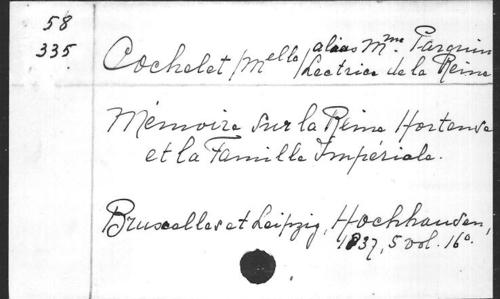 58
335
alias Mme. Parquin
Cochelet (Melle) Lectrice de la Reine
Mémoire sur la Reine Hortense
et la Famille Impériale.
Bruxelles et Leipzig, Hochhausen,
1837, 5 vol. 16o.